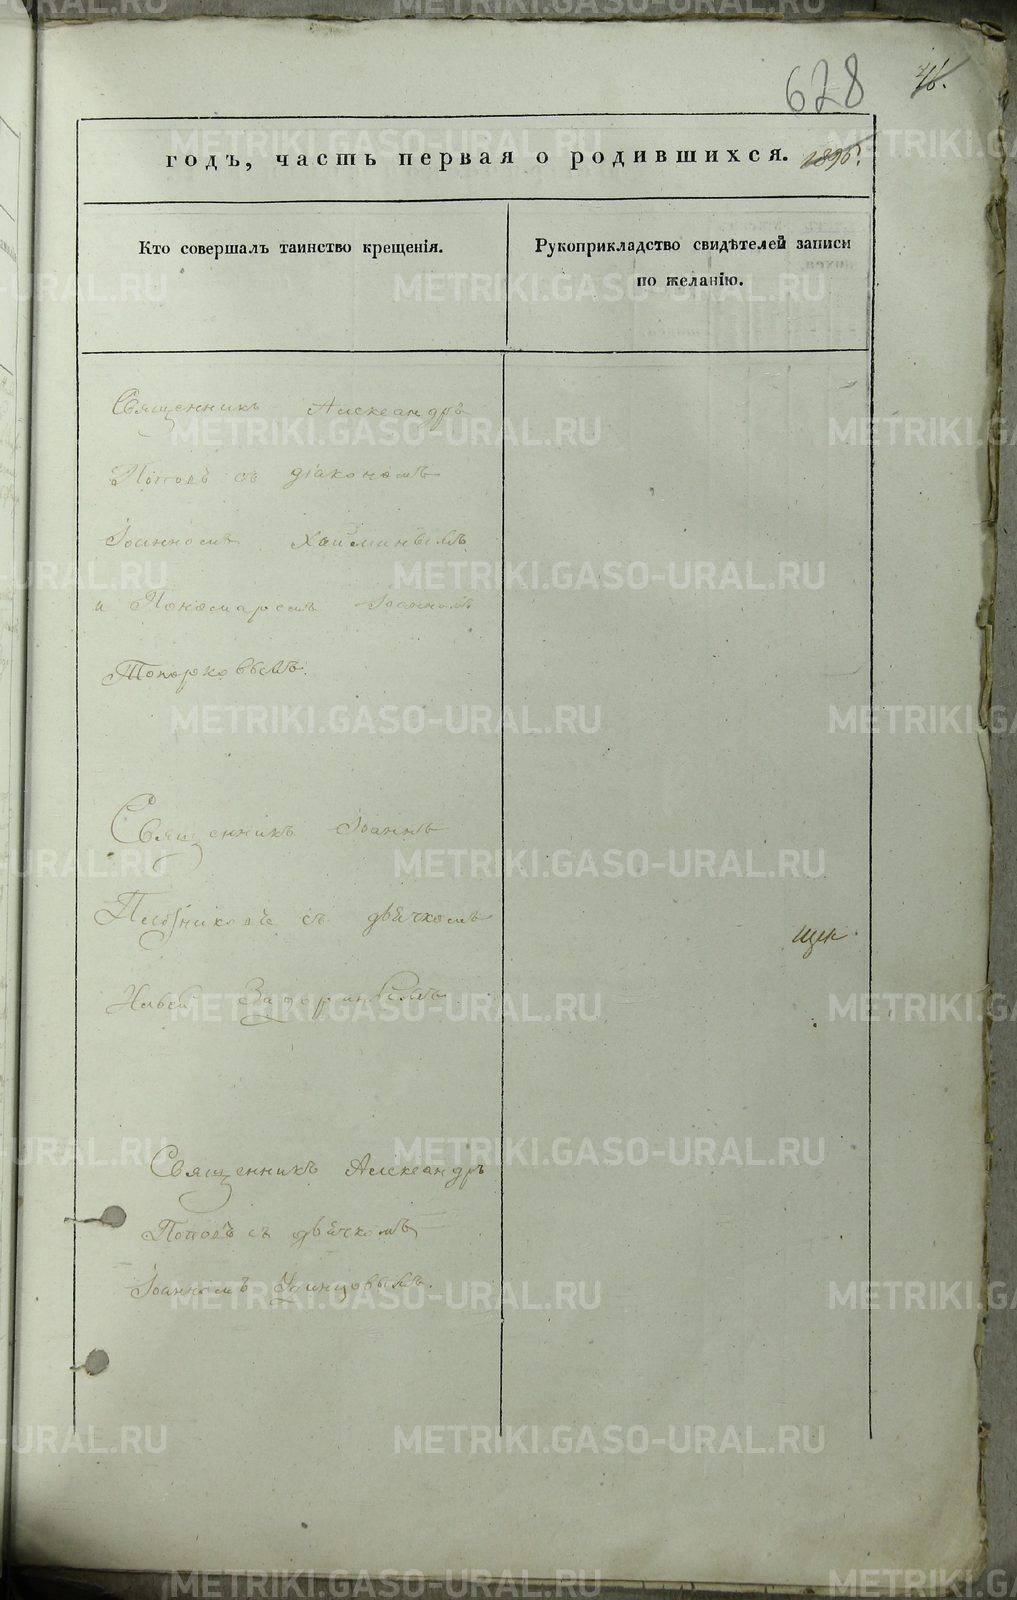 628
годъ, часть первая о родившихся.
Кто совершалъ таинство крещенія.
Рукоприкладство свидѣтелей записи
по желанію.
Священникъ Александръ
Поповъ съ діакономъ
Іоанномъ
и Пономаремъ Іоанномъ
Топорковымъ.
Священникъ Іоаннъ
съ дьячкомъ
Священникъ Александръ
Поповъ съ дьячкомъ
Іоанномъ
METRIKI.GASO-URAL.RU